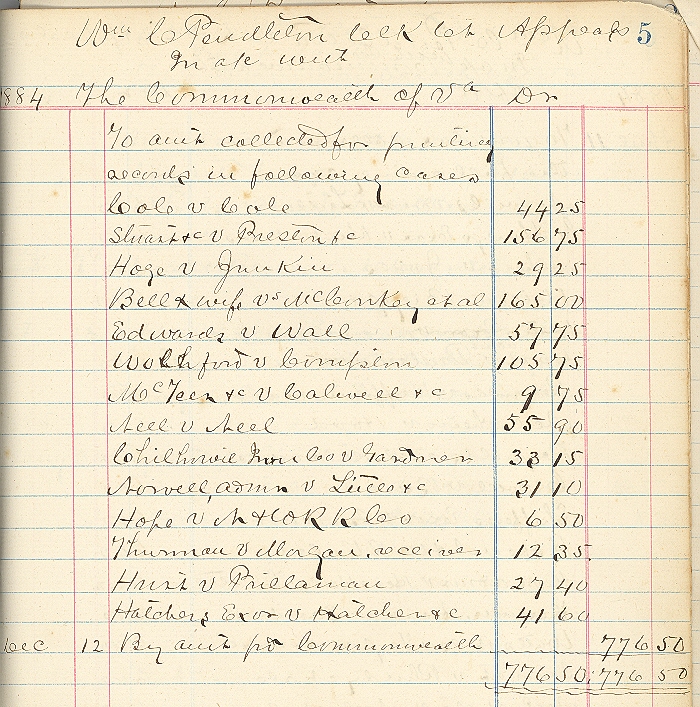 Wm C Pendleton Clk Ct Appeals 5
In a/c with
1884 The Commonwealth of Va Dr
To amt collected for printing
records in following cases
Cole v Cale 44 25
Stuart &c v Preston &c 156 75
Hoge v Junkin 29 25
Bell & wife vs McConkey et al 165 00
Edwards v Wall 57 75
v Compton 105 75
&c v Calwell &c 9 75
Neel v Neel 55 90
Chilhowie Iron Co v Gardner 33 15
Norvell, admr v Little &c 31 10
Hope v N & W R R Co 6 50
Thurman v Morgan, receiver 12 35
Hurst v Prillaman 27 40
Hatchers Exor v Hatcher &c 41 60
Dec 12 By amt pd Commonwealth 776 50
776 50 776 50